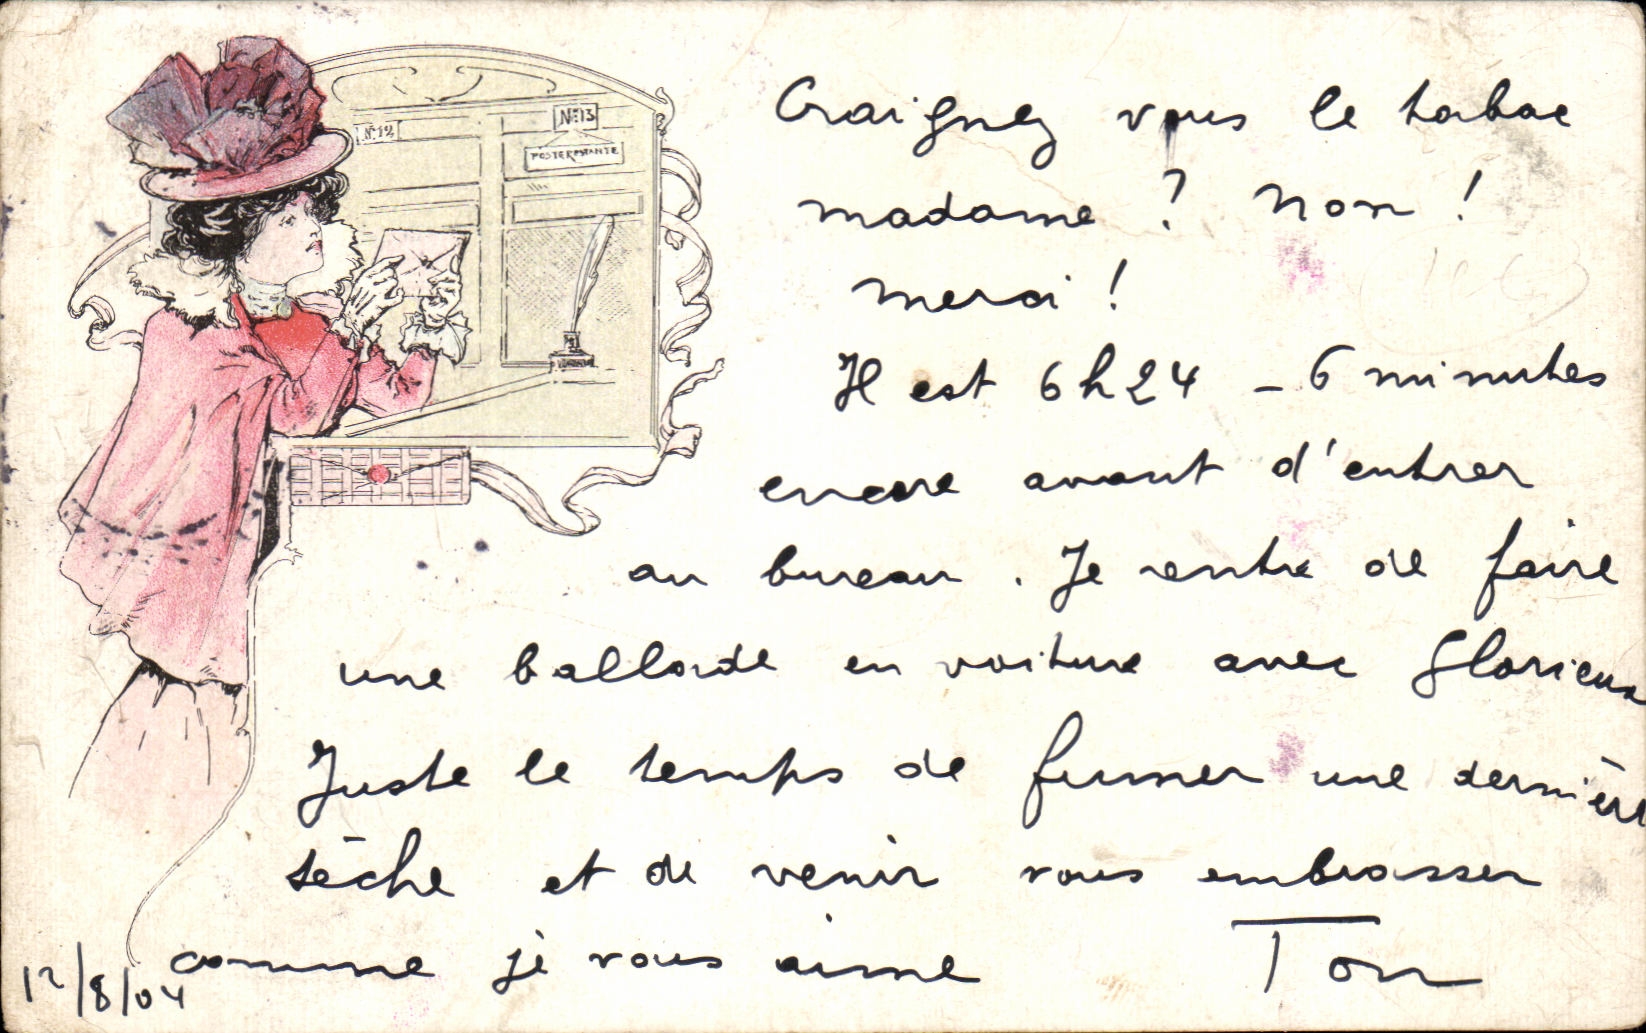 N° 12
N° 13
POSTE RESTANTE
Craignez vous le tabac
madame ? Non !
merci !
Il est 6h24 – 6 minutes
encore avant d'entrer
au bureau . Je rentre de faire
une ballade en voiture avec Glorieux
Juste le temps de fumer une dernière
sèche et de venir vous embrasser
comme je vous aime Ton
12/8/04